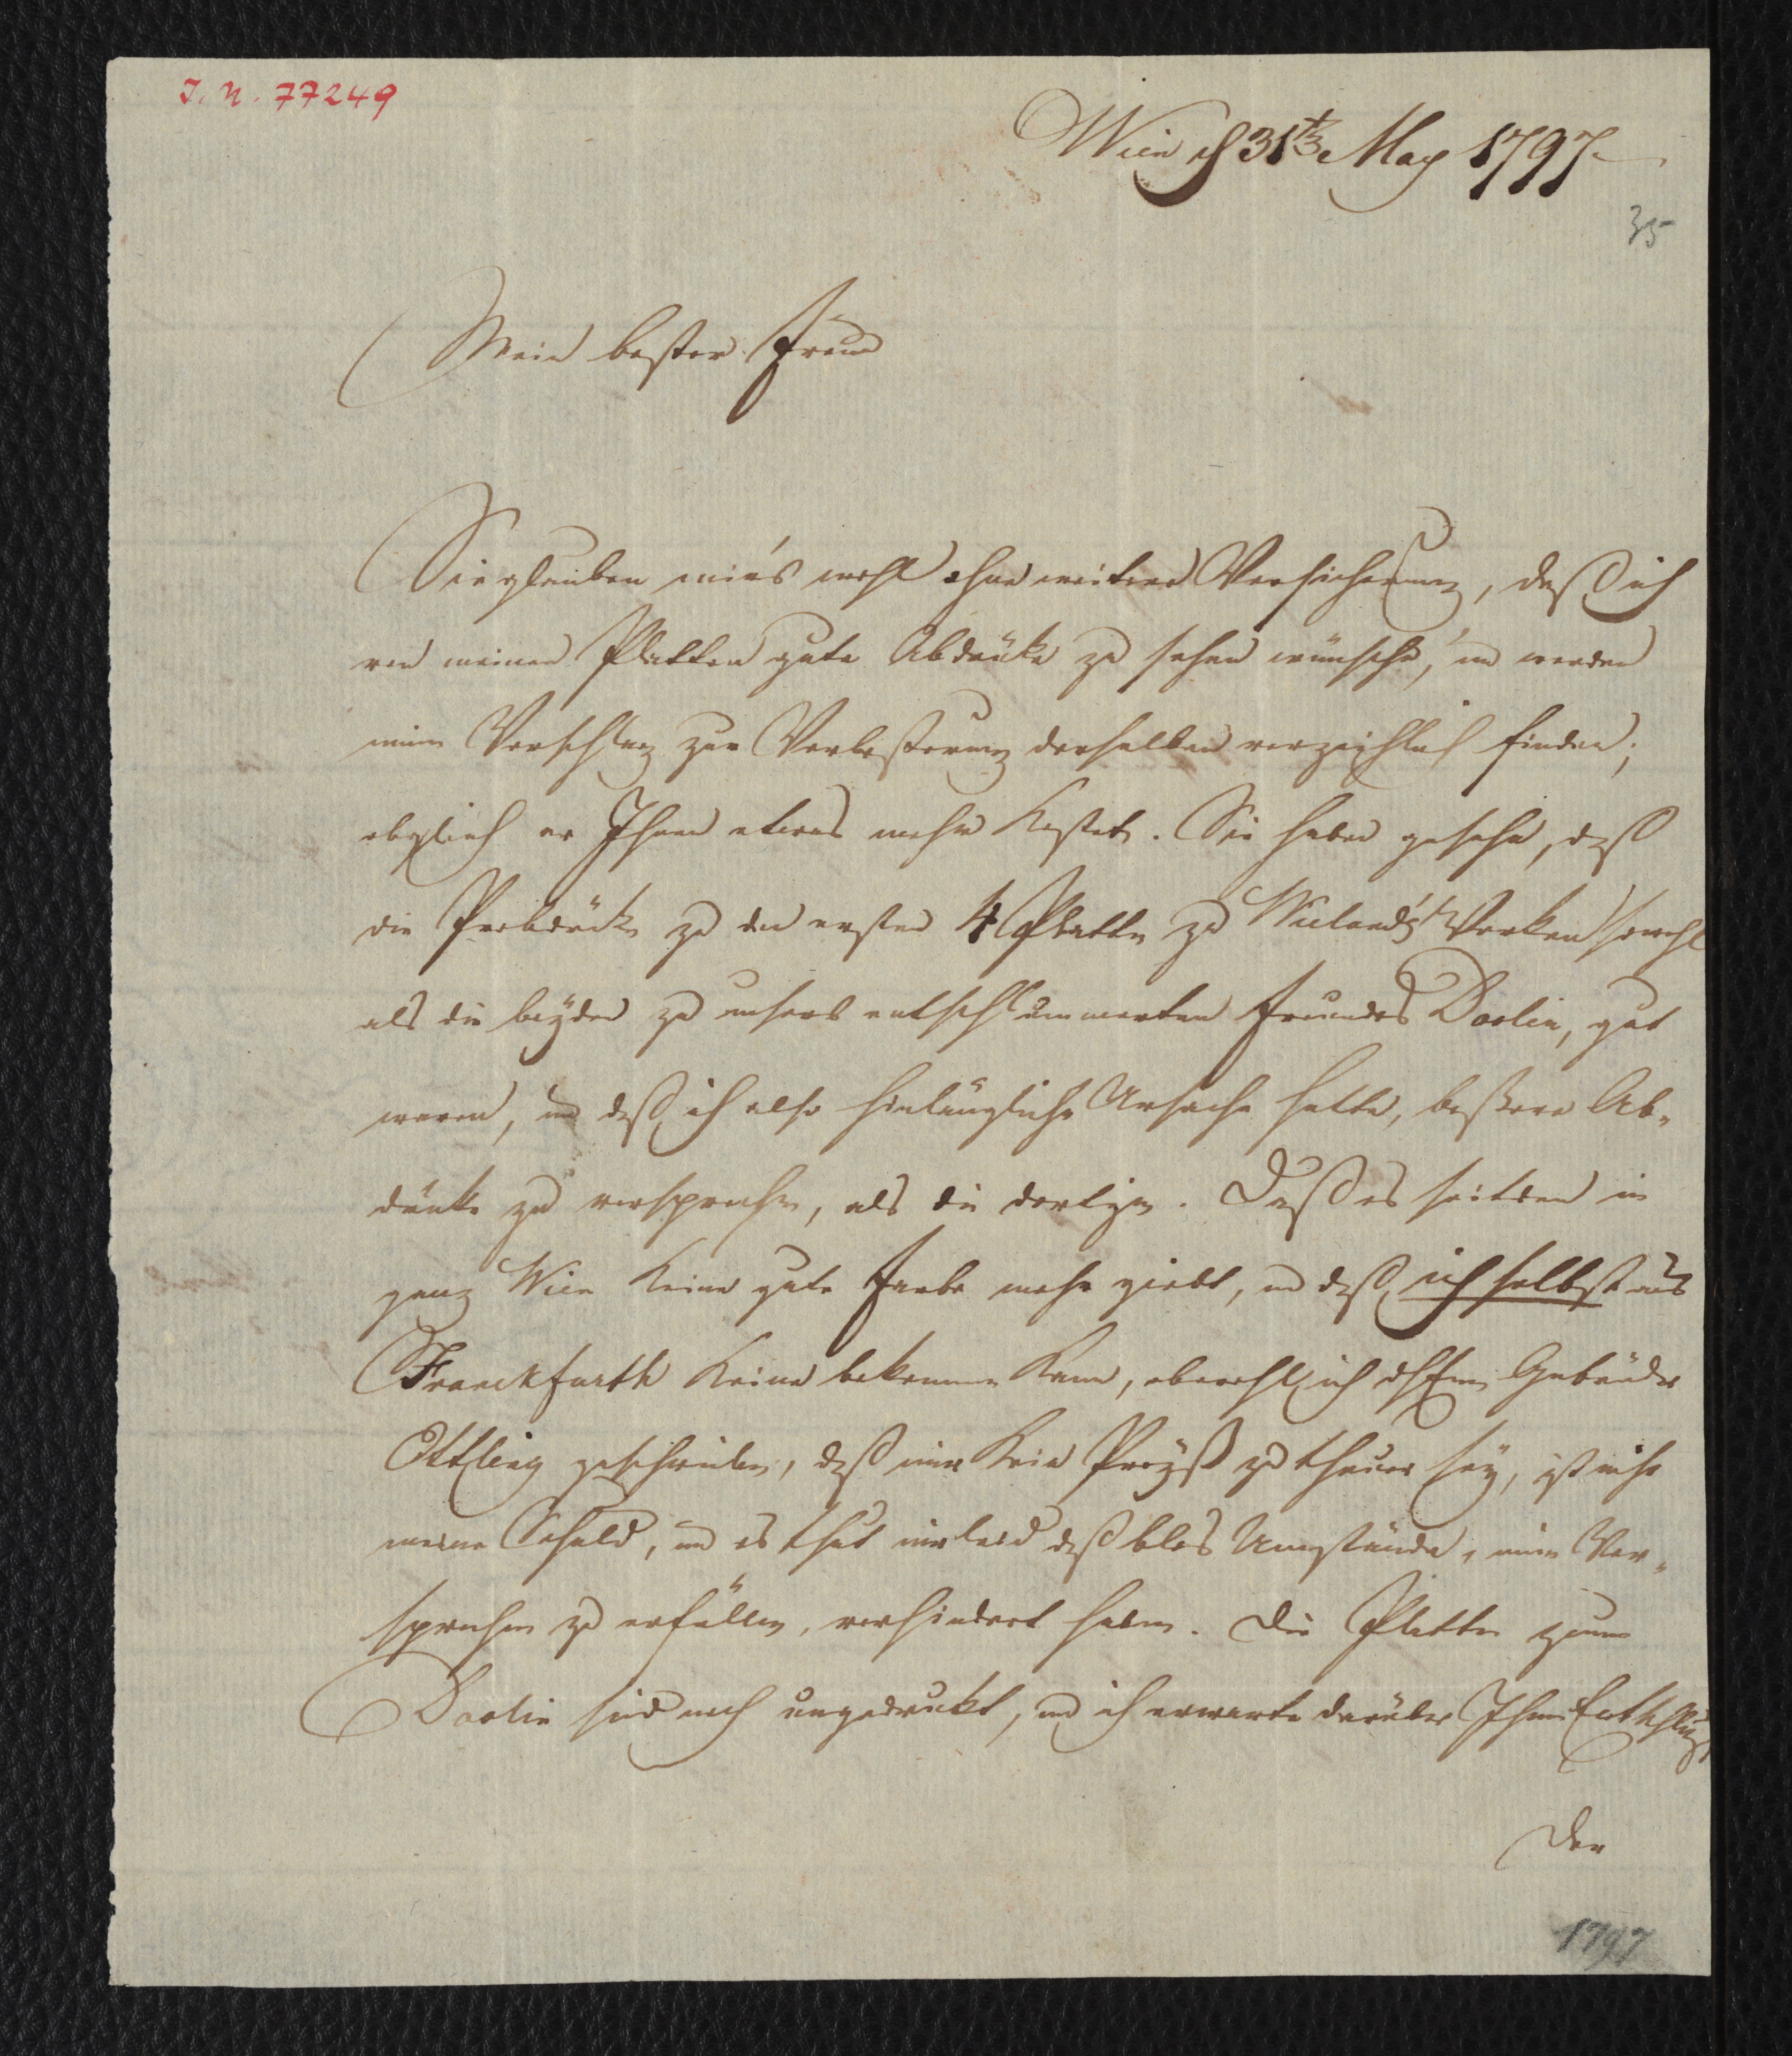 I. N. 77249
Wien d 31t May 1797
35
Mein bester Freund
Sie glauben mir's wohl ohne weitere Versicherung, daß ich
von meinen Platten gute Abdrüke zu sehen wünsche, und werden
mein Vorschlag zur Verbeßerung derselben verzeyhlich finden;
obgleich er Ihnen etwas mehr kostet. Sie haben gesehn, daß
die Probdrücke zu den ersten 4 Platten zu Wieland's Werken sowohl
als die beyden zu unsers entschlummerten Freundes Doolin, gut
waren, und daß ich also hinlängliche Ursache hatte, beßere Ab-
drücke zu versprechen, als die dortigen. Daß es seitdem in
ganz Wien keine gute Farbe mehr giebt, und daß ich selbst aus
Franckfurth keine bekommen kann, obwohl ich Gebrüder
Ettling geschrieben, daß mir kein Preyß zu theuer sey, ist nicht
meine Schuld, und es thut mir leid daß blos Umstände, mein Ver-
sprechen zu erfüllen, verhindert haben. Die Platten zum
Doolin sind noch ungedruckt, und ich erwarte darüber Ihren Entschluß
Der
1797